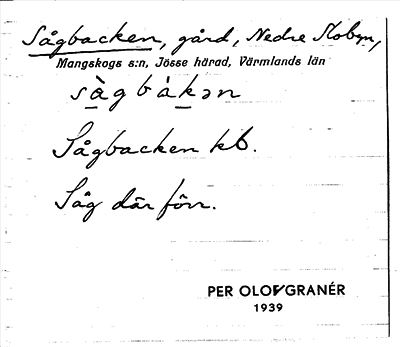 Sågbacken, gård, Nedre Slobyn,
Mangskogs s:n, Jösse härad, Värmlands län
sàgbàkən
Sågbacken kb.
Såg där förr.
PER OLOV GRANÉR
1939